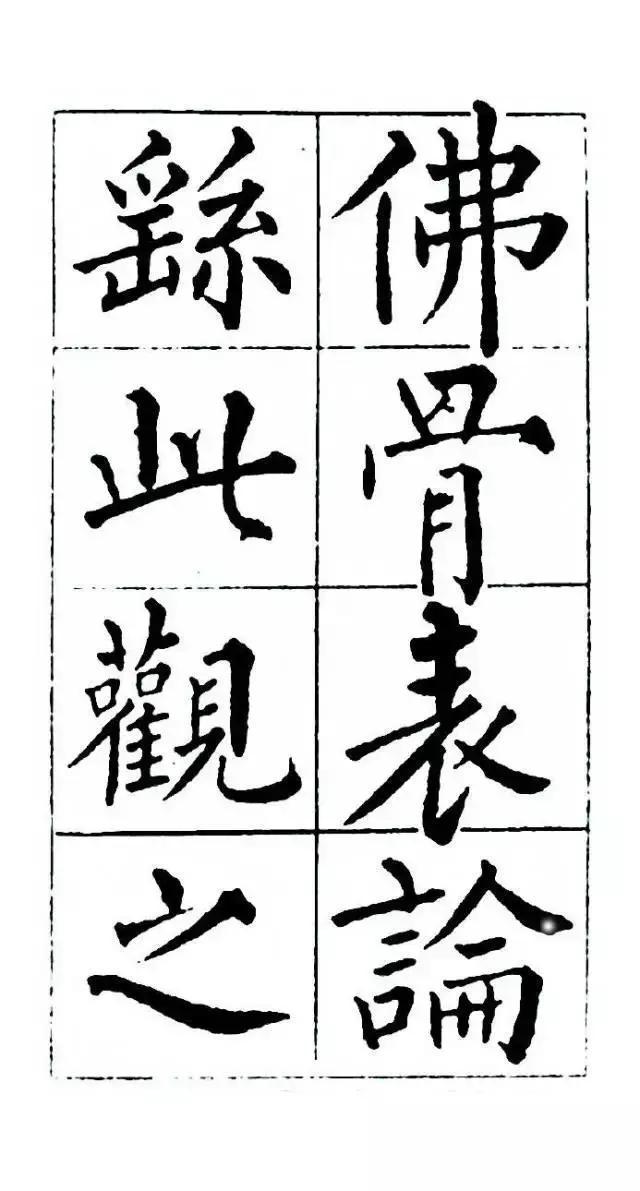 佛骨表論
繇此觀之